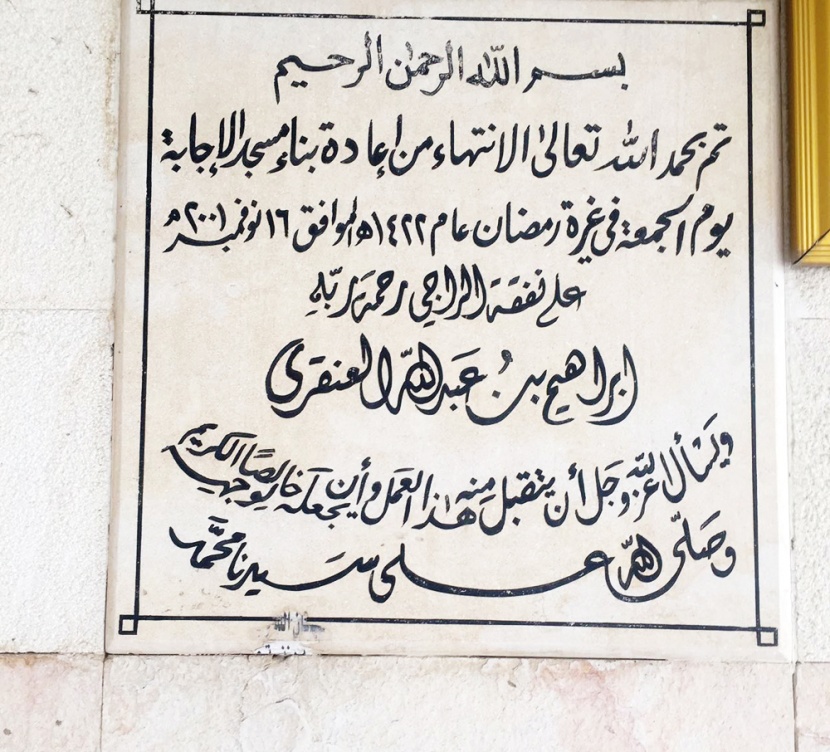 بسم الله الرحمن الرحيم
تم بحمد الله تعالى الانتهاء من إعادة بناء مسجد الإجابة
يوم الجمعة في غرة رمضان عام ١٤٢٢هـ الموافق ١٦ نوفمبر ٢٠٠١م
على نفقة الراجي رحمة ربّهِ
ابراهيم بنُ عَبد اللّه العنقري
ويَسْأل اللّه عز وجَل أن يتقبل مِنه هٰذا العَمل وأن يجعَله خالِصًا لوجهِهِ الكريم
وصَلّى اللّه عَلى سَيدنا محمَّد